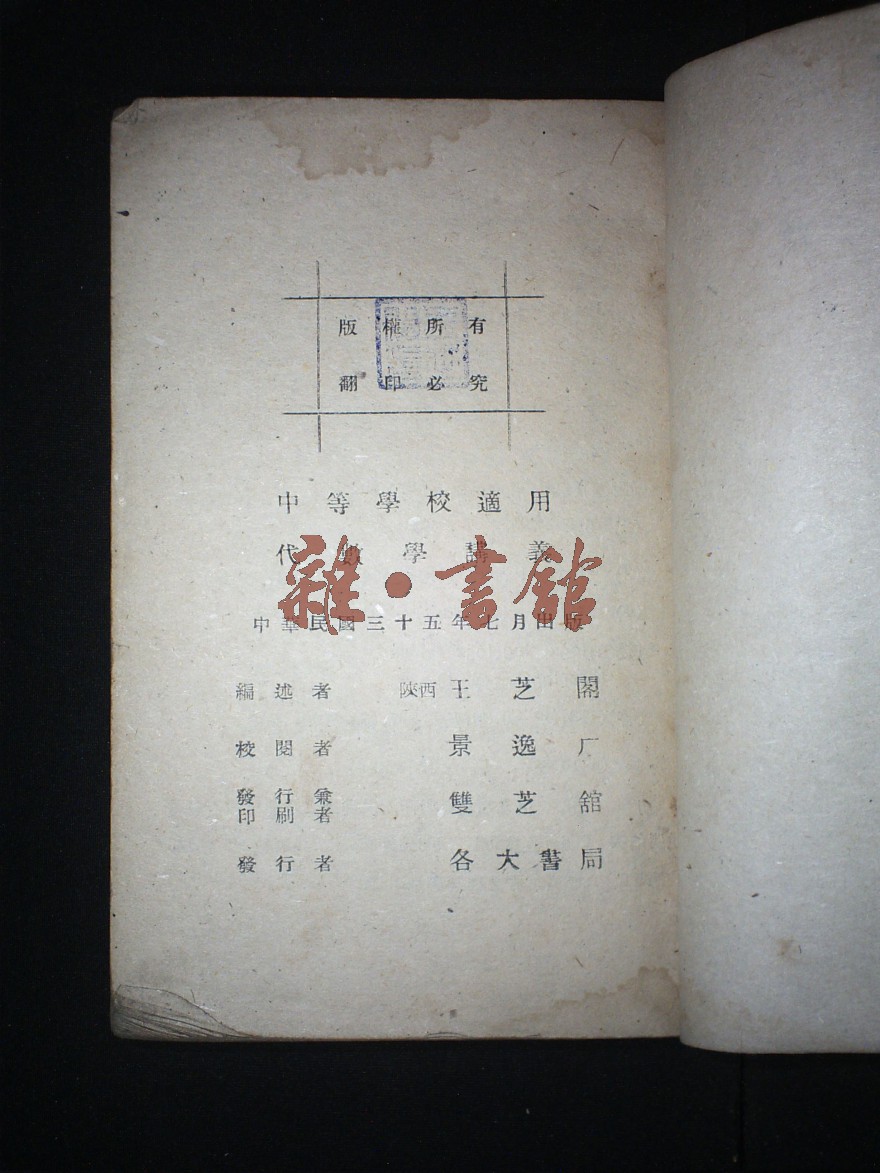 版權所有
翻印必究
中等學校適用
代數學講義
雜·書館
中華民國三十五年七月出版
編述者 陝西 王芝閣
校閱者 景逸厂
發行兼印刷者 雙芝舘
發行者 各大書局